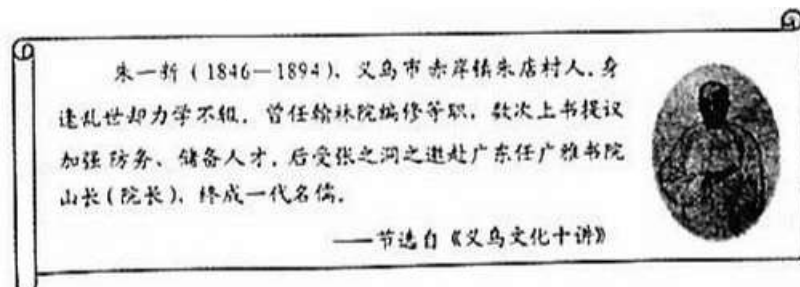 朱一新（1846—1894），义乌市赤岸镇朱店村人，身
逢乱世却力学不辍，曾任翰林院编修等职，数次上书提议
加强防务、储备人才，后受张之洞之邀赴广东任广雅书院
山长(院长)，终成一代名儒。
——节选自《义乌文化十讲》